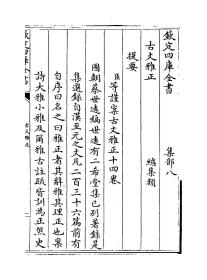 欽定四庫全書
集部八
古文雅正
總集類
提要
臣等謹案古文雅正十四卷
國朝蔡世遠編世遠有二希堂集已著錄是
集選錄自漢至元之文凡二百三十六篇前有
自序曰名之曰雅正者其辭雅其理正也案
詩大雅小雅及爾雅古註疏皆訓為正然史
欽定四庫全書
古文雅正